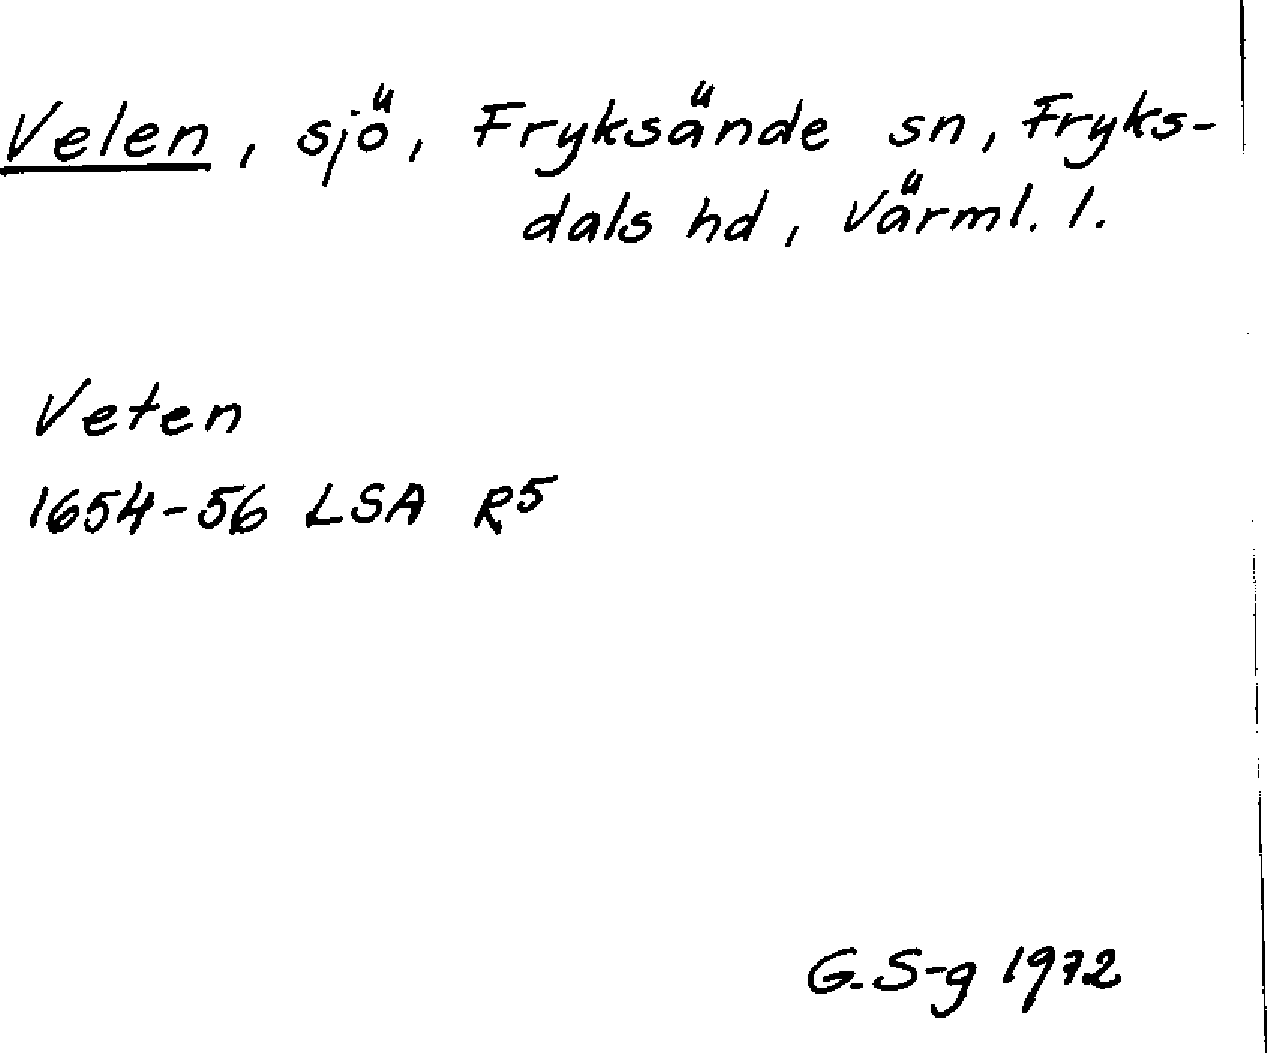 Velen, sjö, Fryksände sn, Fryks-
dals hd, Värml. l.
Veten
1654-56 LSA R5
G.S-g 1972